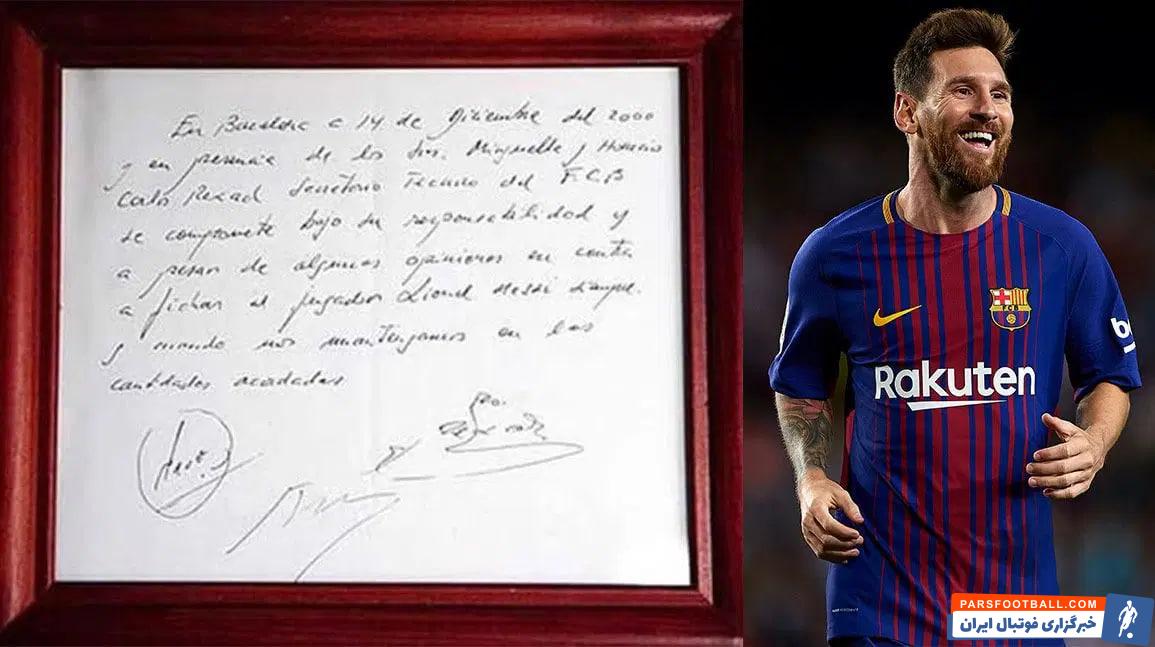 En Barcelona a 14 de Diciembre del 2000
y en presencia de los Sres. Minguella y Horacio
Carlos Rexach Secretario Tecnico del F.C.B
se compromete bajo su responsabilidad y
a pesar de algunas opiniones en contra
a fichar al jugador Lionel Messi siempre.
y cuando nos mantengamos en las
cantidades acordadas
FCB
Rakuten
PARSFOOTBALL.COM
خبرگزاری فوتبال ایران